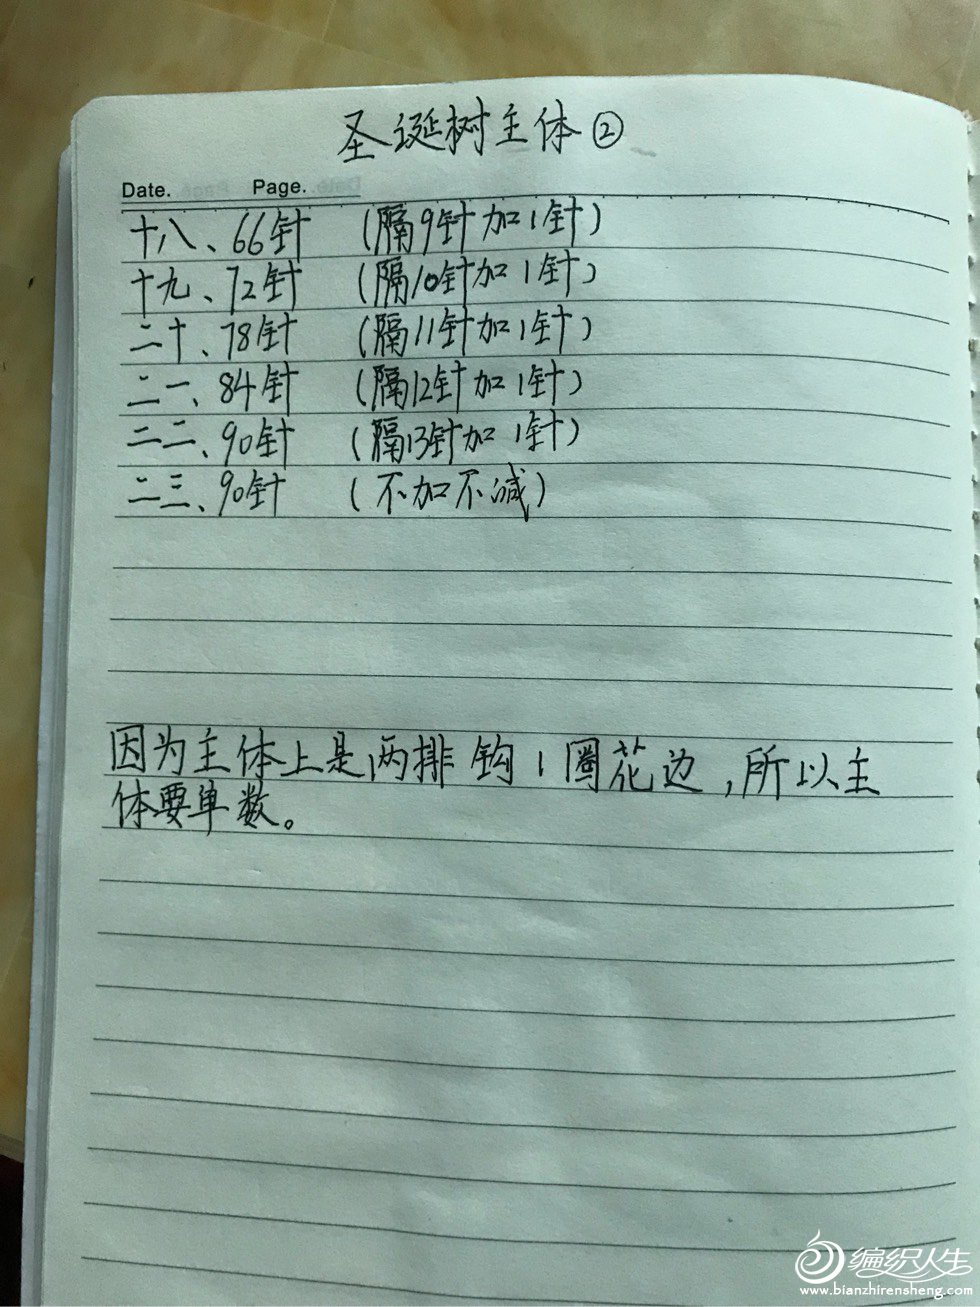 圣诞树主体②
Date. Page.
十八、66针 (隔9针加1针)
十九、72针 (隔10针加1针)
二十、78针 (隔11针加1针)
二一、84针 (隔12针加1针)
二二、90针 (隔13针加1针)
二三、90针 (不加不减)
因为主体上是两排钩1圈花边,所以主
体要单数。
编织人生
www.bianzhirensheng.com